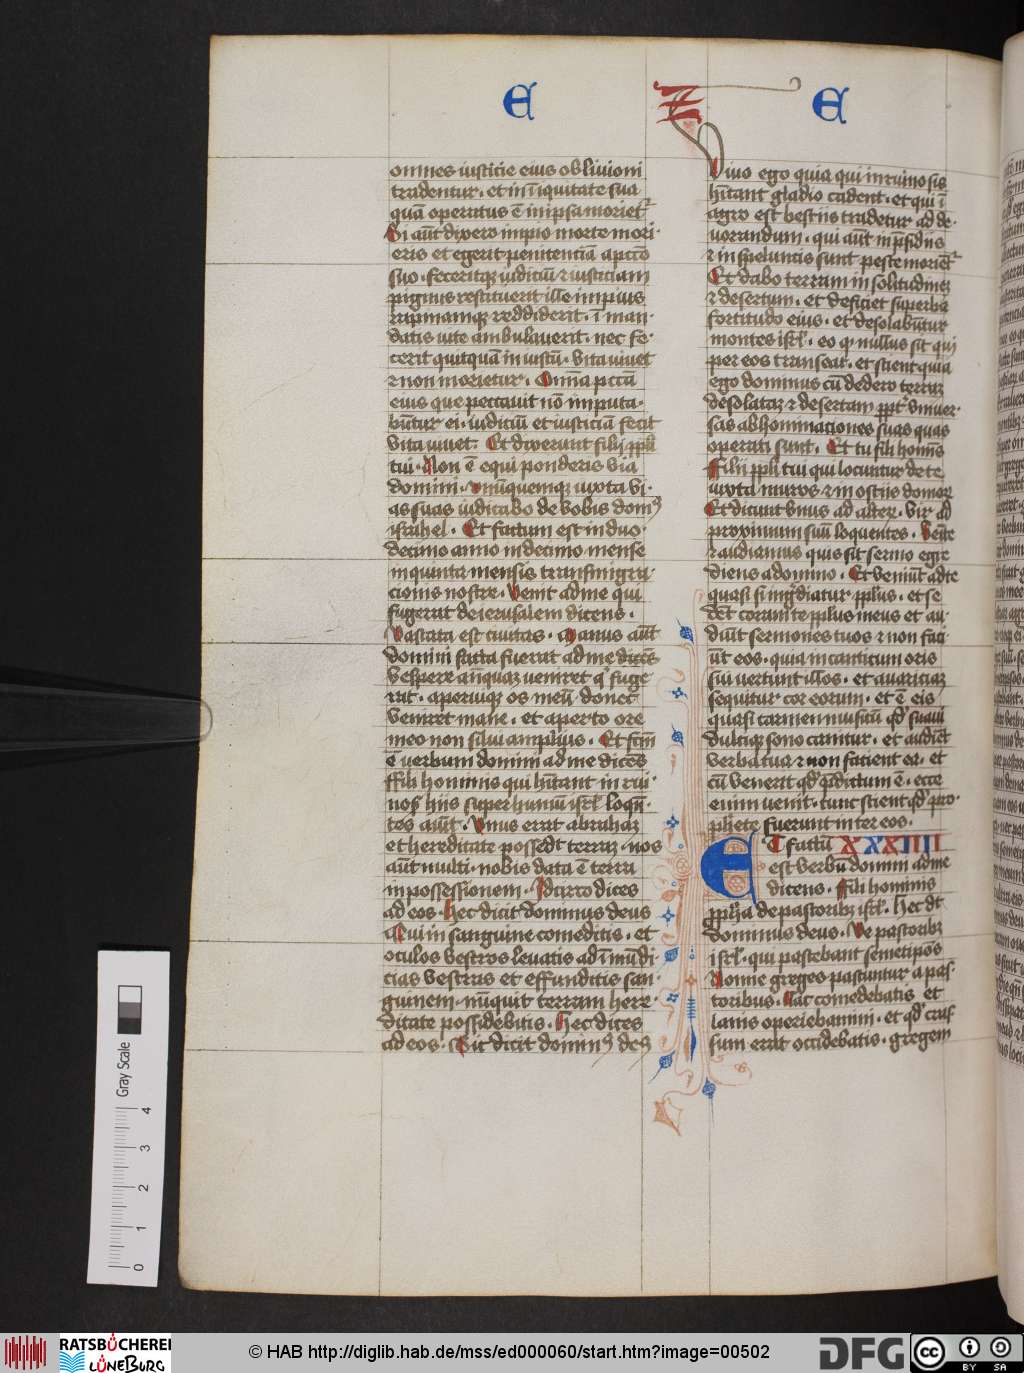 E Z E
omnes iusticie eius oblivioni
tradentur . et in iniquitate sua
quā operatus ē in ipsa moriet᷑
Si aūt dixero impio morte mori
eris et egerit penitenciā a pctō
suo . feceritqꝫ iudiciū ⁊ iusticiam
pignus restituerit ille impius
rapinamqꝫ reddiderit . ī man
datis vite ambulaverit . nec fe
cerit quitquā iniustū . vita vivet
⁊ non morietur . Omīa pctā
eius que peccavit nō imputa
būtur ei . iudiciū et iusticiā fecit
vita vivet . Et dixerunt filij ppl̄i
tui . Non ē equi ponderis via
domini . Vnūquemqꝫ iuxta vi
as suas iudicabo de vobis domꝰ
israhel . Et factum est in duo
decimo anno in decimo mense
in quinta mensis transmigra
cionis nostre . Venit ad me qui
fugerat de ierusalem dicens .
Vastata est civitas . Manus aūt
domini facta fuerat ad me dicēs
vespere anquaꝫ veniret qͥ fuge
rat . aperuitqꝫ os meū donec
veniret mane . et aperto ore
meo non silui amplius . Et fctm̄
ē verbum domini ad me dicēs
ffili hominis qui hītant in rui
nos hijs super humū isrl̄ loqn̄
tes aiūt . Vnus erat abrahaꝫ
et hereditate possedt terraꝫ . nos
aūt multi . nobis data ē terra
in possessionem . Idcirco dices
ad eos . Hec dicit dominus deus
Qui in sanguine comeditis . et
oculos vestros levatis ad īmūdi
cias vestras et effunditis san
guinem . nūquit terram here
ditate possidebitis . Hec dices
ad eos . Sic dicit dominꝰ deꝰ
Vivo ego quia qui in ruinosis
hītant gladio cadent . et qui ī
agro est bestiis tradetur ad de
vorandum . qui aūt in p̄sidiis
⁊ in speluncis sunt peste moriēt᷑
Et dabo terram in solitudineꝫ
⁊ desertum . et deficiet superba
fortitudo eius . et desolabūtur
montes isrl̄ . eo qꝫ nullus sit qui
per eos transeat . et scient quia
ego dominus cū dedero terraꝫ
desolataꝫ ⁊ desertam ppt᷑ vniver
sas abhominaciones suas quas
operati sunt . Et tu fili homīs
Filij ppl̄i tui qui locuntur de te
iuxta muros ⁊ in ostijs domoꝝ
Et dicunt vnus ad alterꝫ . vir ad
proximum suū loquentes . Venite
⁊ audiamus quis sit sermo egre
diens a domino . Et veniūt ad te
quasi si ingrediatur pplus . et se
dēt coram te pplus meus et au
diūt sermones tuos ⁊ non faci
ūt eos . quia in canticum oris
sui vertunt illos . et avariciaꝫ
sequitur cor eorum . et ē eis
quasi carmen musicū qd̓ suavi
dulciqꝫ sono canitur . et audiēt
verba tua ⁊ non facient ea . et
cū venerit qd̓ p̄dictum ē . ecce
enim venit . tunc scient qd̓ pro
phete fuerunt inter eos .
ET factū XXXIIII
est verbū domini ad me
dicens . Fili hominis
pph̄a de pastoribꝫ isrl̄ . Hec dt̄
dominus deus . Ve pastoribꝫ
isrl̄ . qui pastebant semetipos
Nonne greges pastuntur a pas
toribus . Lac comedebatis et
lanis operiebamini . et qd̓ cras
sum erat occidebatis . gregem
Gray Scale
4
3
2
1
0
RATSBÜCHEREI
LÜNEBURG
© HAB http://diglib.hab.de/mss/ed000060/start.htm?image=00502
DFG
cc BY SA